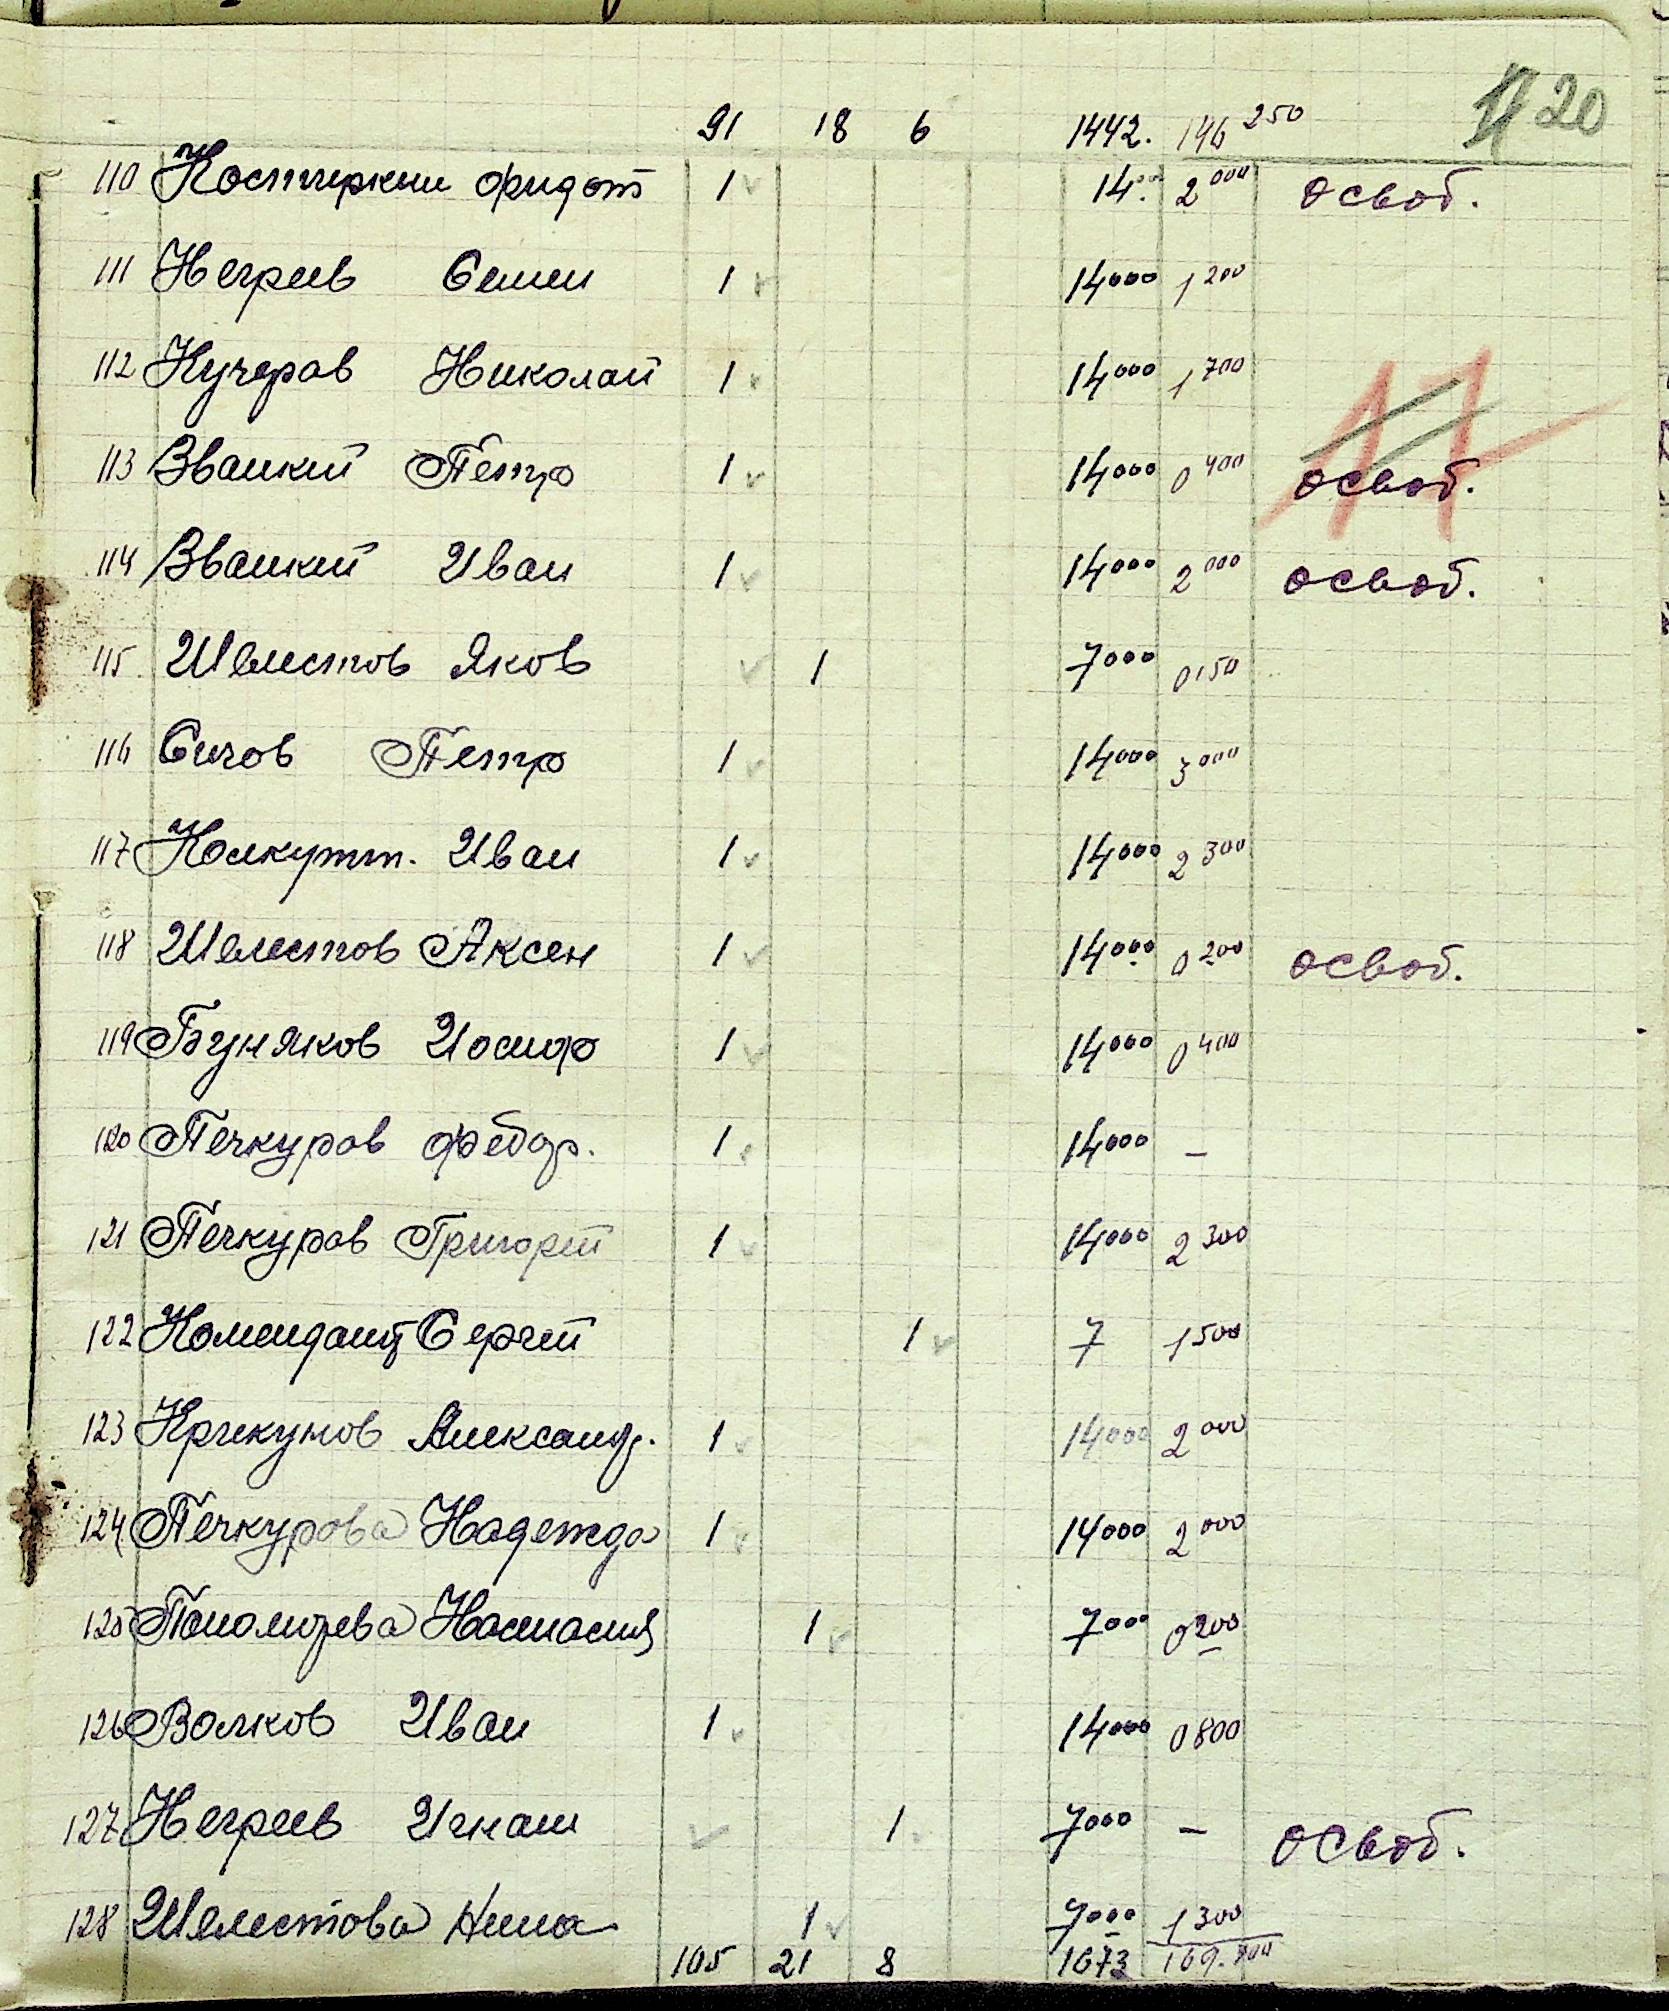 20
91 18 6 1442. 146 250
110 Костиркин Фидот 1 14. 2 000 освоб.
111 Негреев Семен 1 14000 1 200
112 Кучеров Николай 1 14000 1 700
17
113 Званкий Петро 1 14000 0 400 освоб.
114 Званкий Иван 1 14000 2 000 освоб.
115. Шелестов Яков 1 7000 0 150
116 Сичов Петро 1 14000 3 000
117 Иван 1 14000 2 300
118 Шелестов Аксен 1 14000 0 200 освоб.
119 Буняков Иосиф 1 14000 0 400
120 Печкуров Федор. 1 14000 –
121 Печкуров Григорей 1 14000 2 300
122 Комендант Сергей 1 7 1 500
123 Крикунов Александр. 1 14000 2 000
124 Печкурова Надежда 1 14000 2 000
125 Пономорева Настасия 1 7000 0 200
126 Волков Иван 1 14000 0 800
127 Негреев Игнат 1 7000 – освоб.
128 Шелестова Нина 1 7000 1 300
105 21 8 1673 169.700